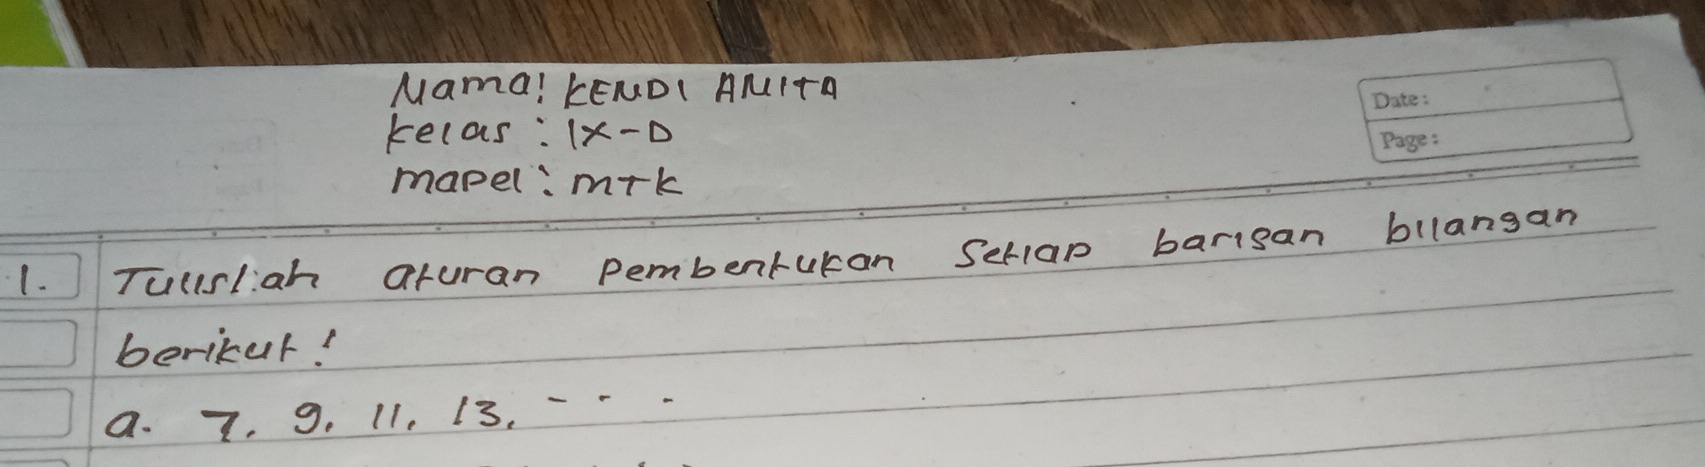 Nama! KENDI ANITA
Date:
kelas : IX-D
Page:
mapel : mtk
1. Tulislah aturan pembentukan setiap barisan bilangan
berikut!
a. 7, 9, 11, 13, - - - -